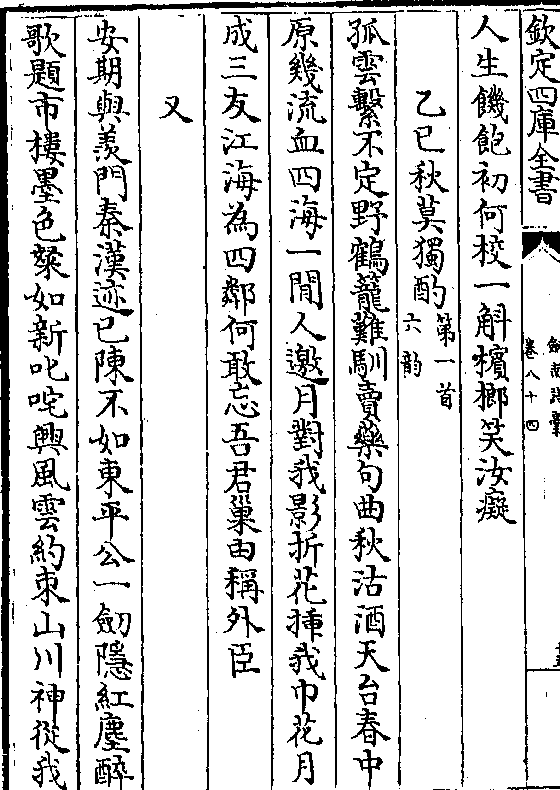 欽定四庫全書
劍南詩稾
卷八十四
人生饑飽初何校一斛檳榔笑汝癡
乙巳秋莫獨酌第一首六韵
孤雲繫不定野鶴籠難馴賣藥句曲秋沽酒天台春中
原幾流血四海一閒人邀月對我影折花揷我巾花月
成三友江海為四鄰何敢忘吾君巢由稱外臣
又
安期與羨門秦漢迹已陳不如東平公一劒隱紅塵醉
歌題市樓墨色粲如新叱咤興風雲約束山川神從我